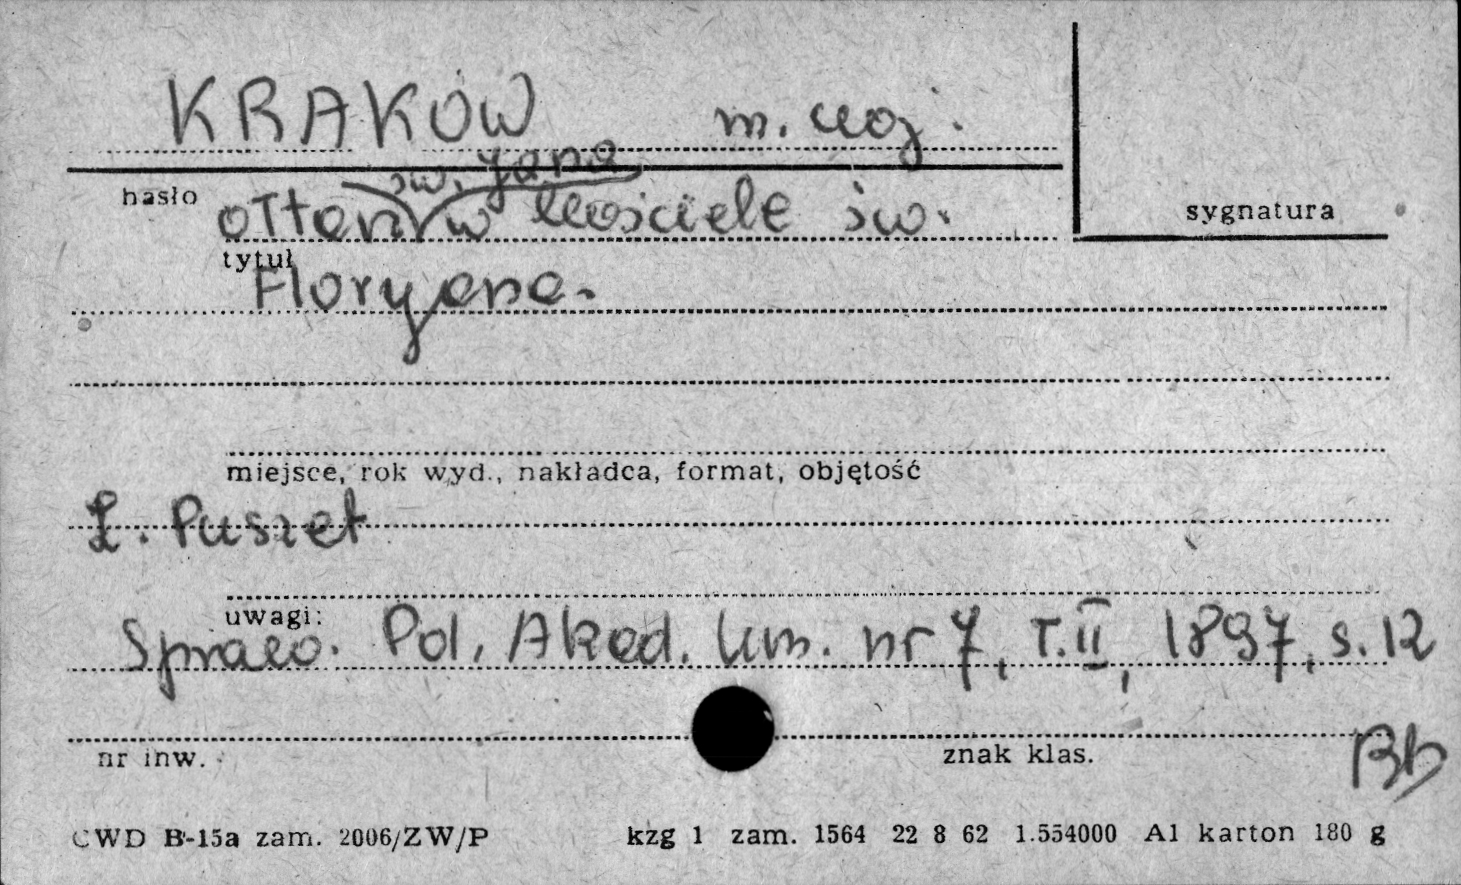 KRAKÓW m. woj.
św. Jana
hasło
ołtarz w kościele św.
sygnatura
tytuł
Floryana.
miejsce, rok wyd., nakładca, format, objętość
L. Puszet
uwagi:
Spraw. Pol. Akad. Um. nr 7, T. II, 1897, s. 12
nr inw.
znak klas.
Bb
CWD B-15a zam. 2006/ZW/P kzg 1 zam. 1564 22 8 62 1.554000 A1 karton 180 g